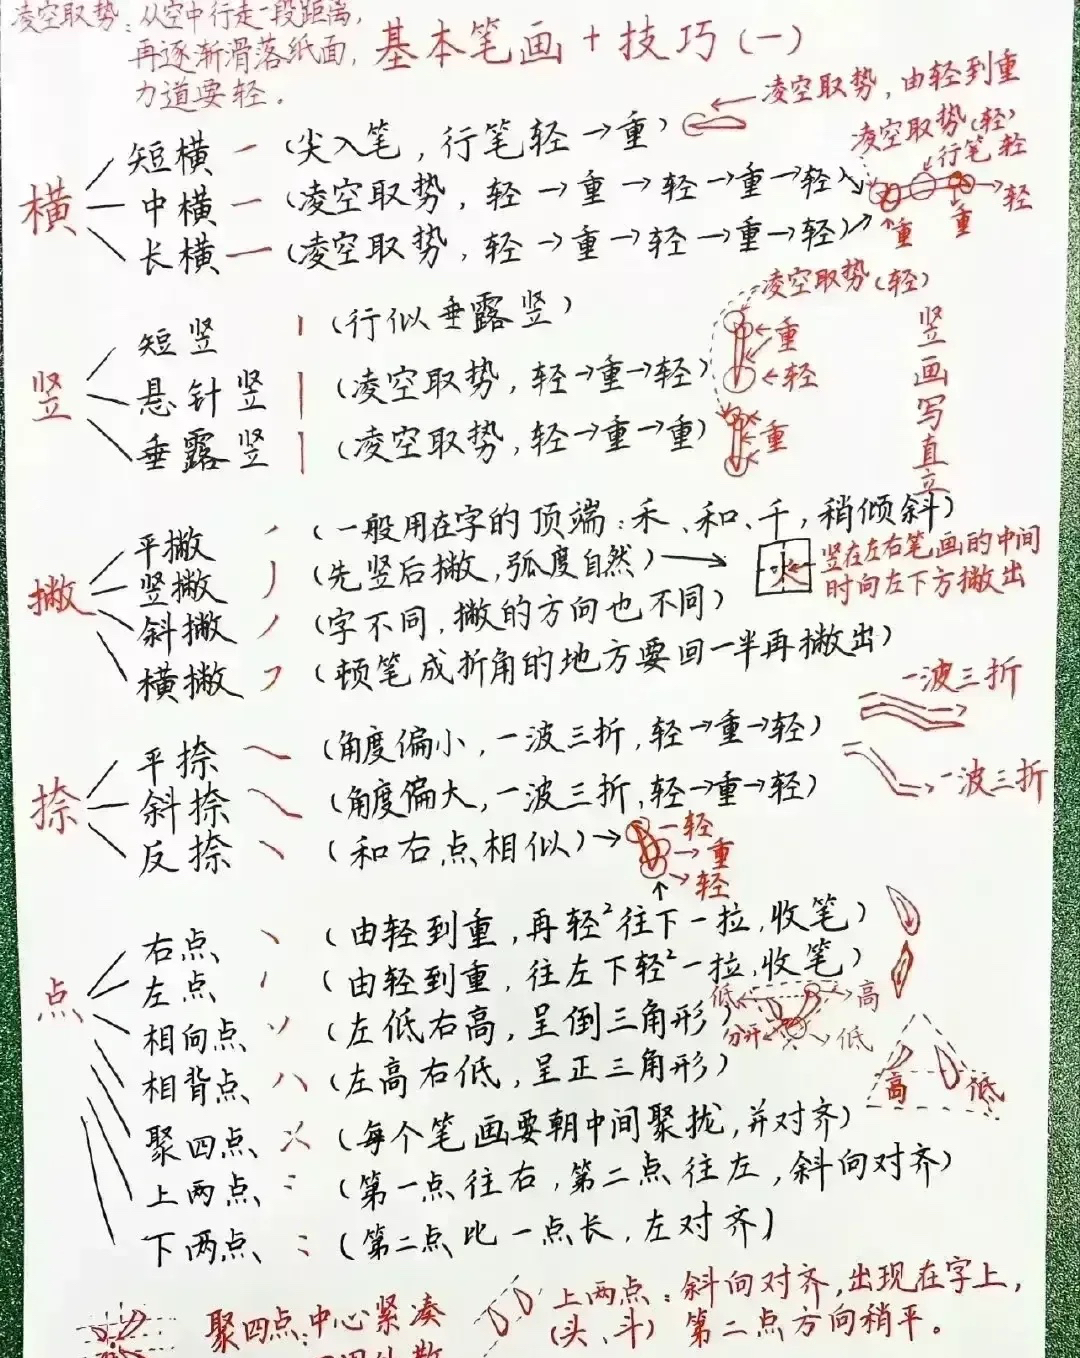 凌空取势：从空中行走一段距离，
再逐渐滑落纸面，
力道要轻。
基本笔画+技巧(一)
凌空取势，由轻到重
横
短横 (尖入笔，行笔轻→重)
凌空取势(轻)
行笔轻
中横 (凌空取势，轻→重→轻→重→轻)
轻
重
重
长横 (凌空取势，轻→重→轻→重→轻)
竖
凌空取势(轻)
短竖 (行似垂露竖)
重
悬针竖 (凌空取势，轻→重→轻)
轻
垂露竖 (凌空取势，轻→重→重)
重
竖画写直立
撇
平撇 (一般用在字的顶端：禾、和、千，稍倾斜)
竖撇 (先竖后撇，弧度自然)→
竖在左右笔画的中间
时向左下方撇出
斜撇 (字不同，撇的方向也不同)
横撇 (顿笔成折角的地方要回一半再撇出)
一波三折
捺
平捺 (角度偏小，一波三折，轻→重→轻)
一波三折
斜捺 (角度偏大，一波三折，轻→重→轻)
反捺 (和右点相似)→
轻
重
轻
点
右点 (由轻到重，再轻²往下一拉，收笔)
左点 (由轻到重，往左下轻²一拉，收笔)
低 高
分开 低
相向点 (左低右高，呈倒三角形)
相背点 (左高右低，呈正三角形)
高 低
聚四点 (每个笔画要朝中间聚拢，并对齐)
上两点 (第一点往右，第二点往左，斜向对齐)
下两点 (第二点比一点长，左对齐)
聚四点：中心紧凑
上两点：斜向对齐，出现在字上，
(头、斗) 第二点方向稍平。